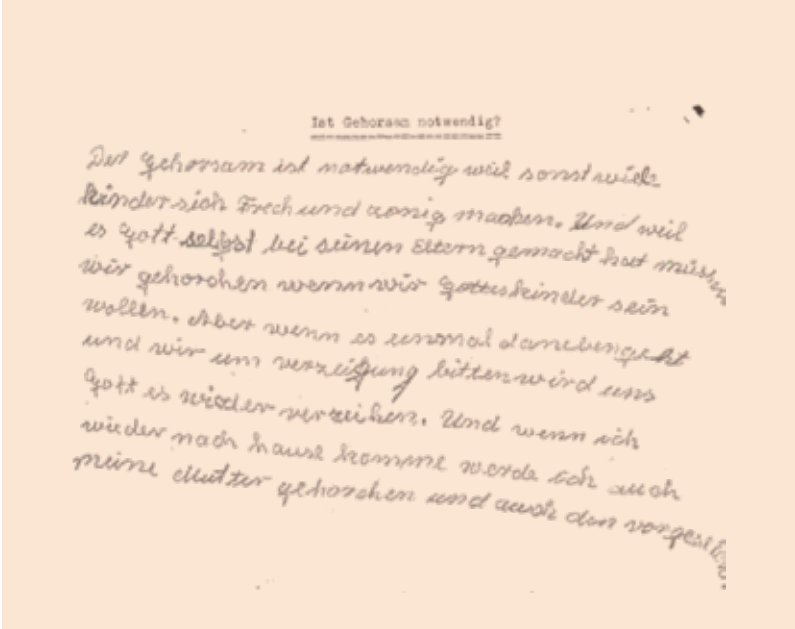 Ist Gehorsam notwendig?
Der Gehorsam ist notwendig weil sonst viele
kinder sich Frech und zonig machen. Und weil
es Gott selbst bei seinen Eltern gemacht hat müssen
wir gehorchen wenn wir Gotteskinder sein
wollen. Aber wenn es einmal danebengeht
und wir um verzeigung bitten wird uns
Gott es wieder verzeihen. Und wenn ich
wieder nach hause komme werde ich auch
meine Mutter gehorchen und auch den